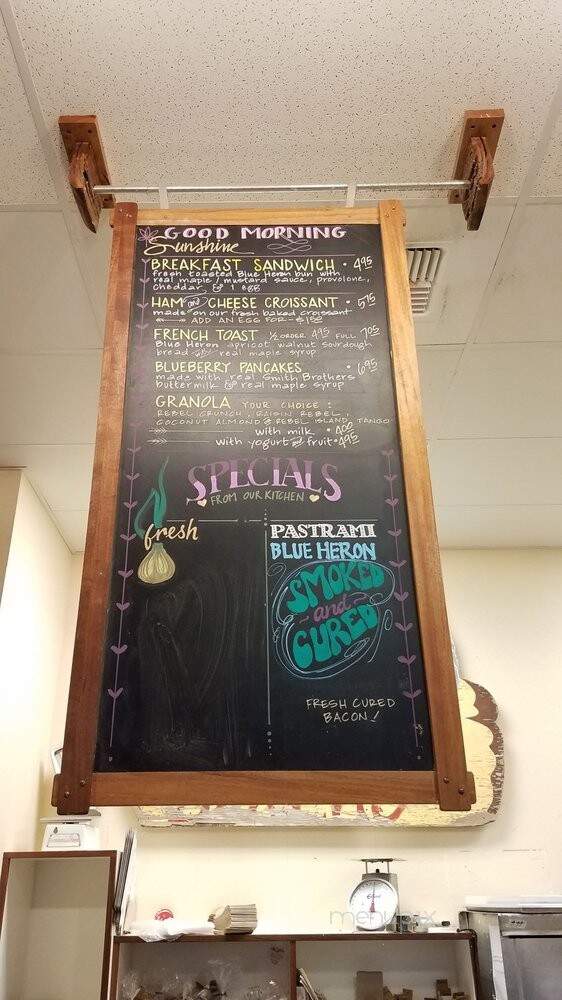 GOOD MORNING
Sunshine
BREAKFAST SANDWICH • 4.95
fresh toasted Blue Heron bun with
real maple/mustard sauce, provolone,
cheddar, & 1 egg
HAM and CHEESE CROISSANT • 5.75
made on our fresh baked croissant
ADD AN EGG FOR $1.50
FRENCH TOAST ½ ORDER 4.95 FULL 7.05
Blue Heron apricot walnut sourdough
bread with real maple syrup
BLUEBERRY PANCAKES • 6.95
made with real Smith Brothers
buttermilk & real maple syrup
GRANOLA YOUR CHOICE:
REBEL CRUNCH, RAISIN REBEL,
COCONUT ALMOND & REBEL ISLAND TANGO
with milk • 4.00
with yogurt and fruit • 4.95
SPECIALS
FROM OUR KITCHEN
fresh
PASTRAMI
BLUE HERON
SMOKED
and
CURED
FRESH CURED
BACON!
menupix